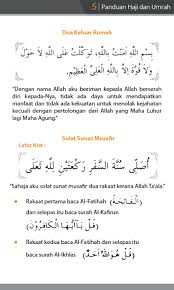 5 | Panduan Haji dan Umrah
Doa Keluar Rumah
بِسْمِ اللَّهِ آمَنْتُ بِاللَّهِ، تَوَكَّلْتُ عَلَى اللَّهِ لَا حَوْلَ
وَلَا قُوَّةَ إِلَّا بِاللَّهِ الْعَلِيِّ الْعَظِيْمِ
"Dengan nama Allah aku beriman kepada Allah berserah
diri kepada-Nya, tidak ada daya untuk mendapatkan
manfaat dan tidak ada kekuatan untuk menolak kejahatan
kecuali dengan pertolongan dari Allah yang Maha Luhur
lagi Maha Agung."
Solat Sunat Musafir
Lafaz Niat :
أُصَلِّي سُنَّةَ السَّفَرِ رَكْعَتَيْنِ لِلَّهِ تَعَالَى
"Sahaja aku solat sunat musafir dua rakaat kerana Allah Ta'ala."
• Rakaat pertama baca Al-Fatihah (الْفَاتِحَةُ)
dan selepas itu baca surah Al-Kafirun
(قُلْ يَا أَيُّهَا الْكَافِرُونَ)
• Rakaat kedua baca Al-Fatihah dan selepas itu
baca surah Al-Ikhlas (قُلْ هُوَ اللَّهُ أَحَدٌ)